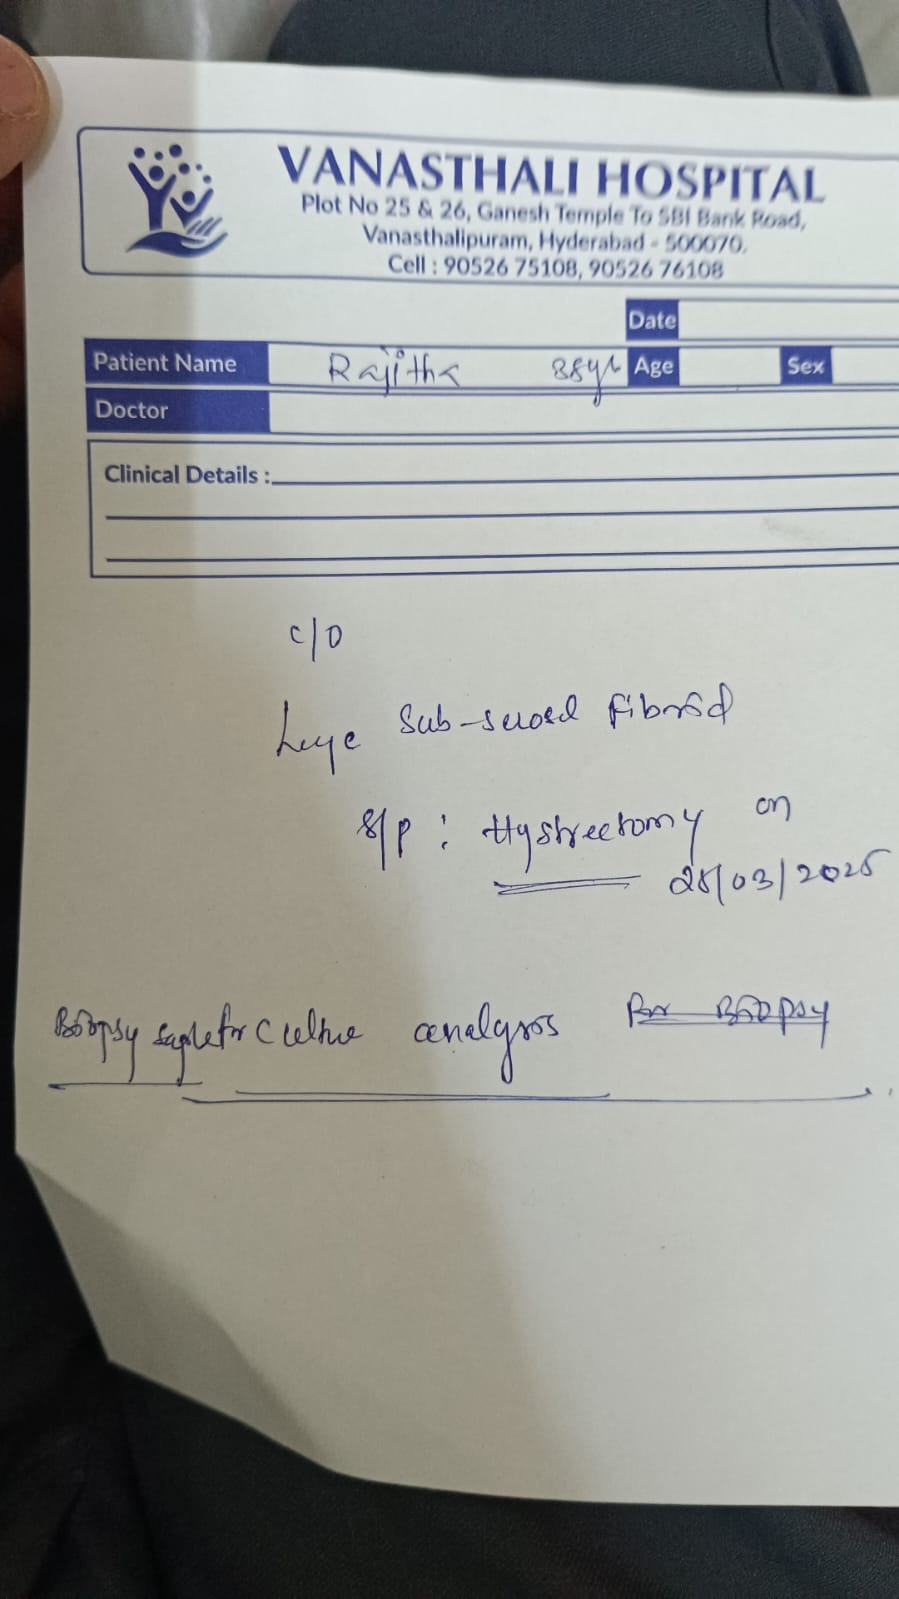 VANASTHALI HOSPITAL
Plot No 25 & 26, Ganesh Temple To SBI Bank Road,
Vanasthalipuram, Hyderabad - 500070.
Cell : 90526 75108, 90526 76108
Date
Patient Name Rajitha 38yr Age Sex
Doctor
Clinical Details :
c/o
Huge Sub-serosal fibroid
S/P : Hystrectomy on
28/03/2025
Biopsy Sample for Culture analysis For Biopsy